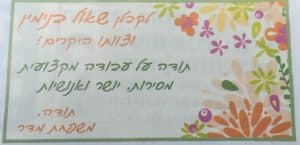 לקבלן שאול בנימין
וצוותו היקרים!
תודה על עבודה מקצועית
מסירות, יושר ואנושיות
תודה,
משפחת מדר